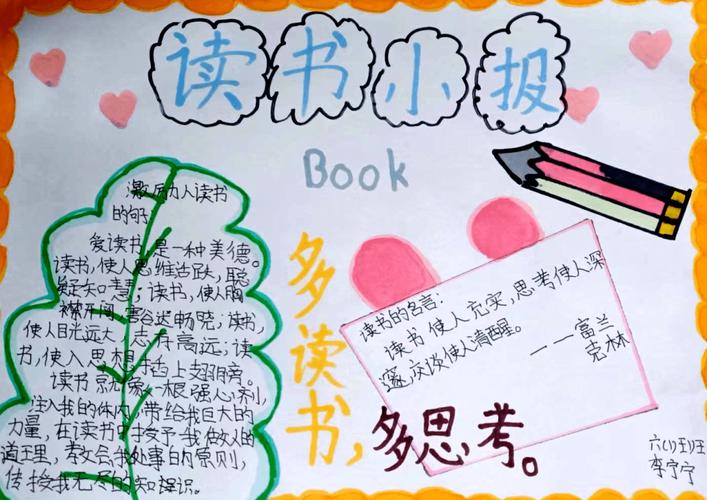 读书小报
Book
激励人读书
的句子
爱读书，是一种美德。
读书，使人思维活跃，聪
颖知慧；读书，使人胸
襟开阔，豁达畅晓；读书，
使人目光远大，志存高远；读
书，使人思想插上翅膀。
读书就象一根强心剂，
注入我的体内，带给我巨大的
力量，在读书中授予我做人的
道王里，教会我处事的原则，
传授我无尽的知识。
多读书，
多思考。
读书的名言：
读书使人充实，思考使人深
邃，交谈使人清醒。
——富兰
克林
六(1)班
李宁宁